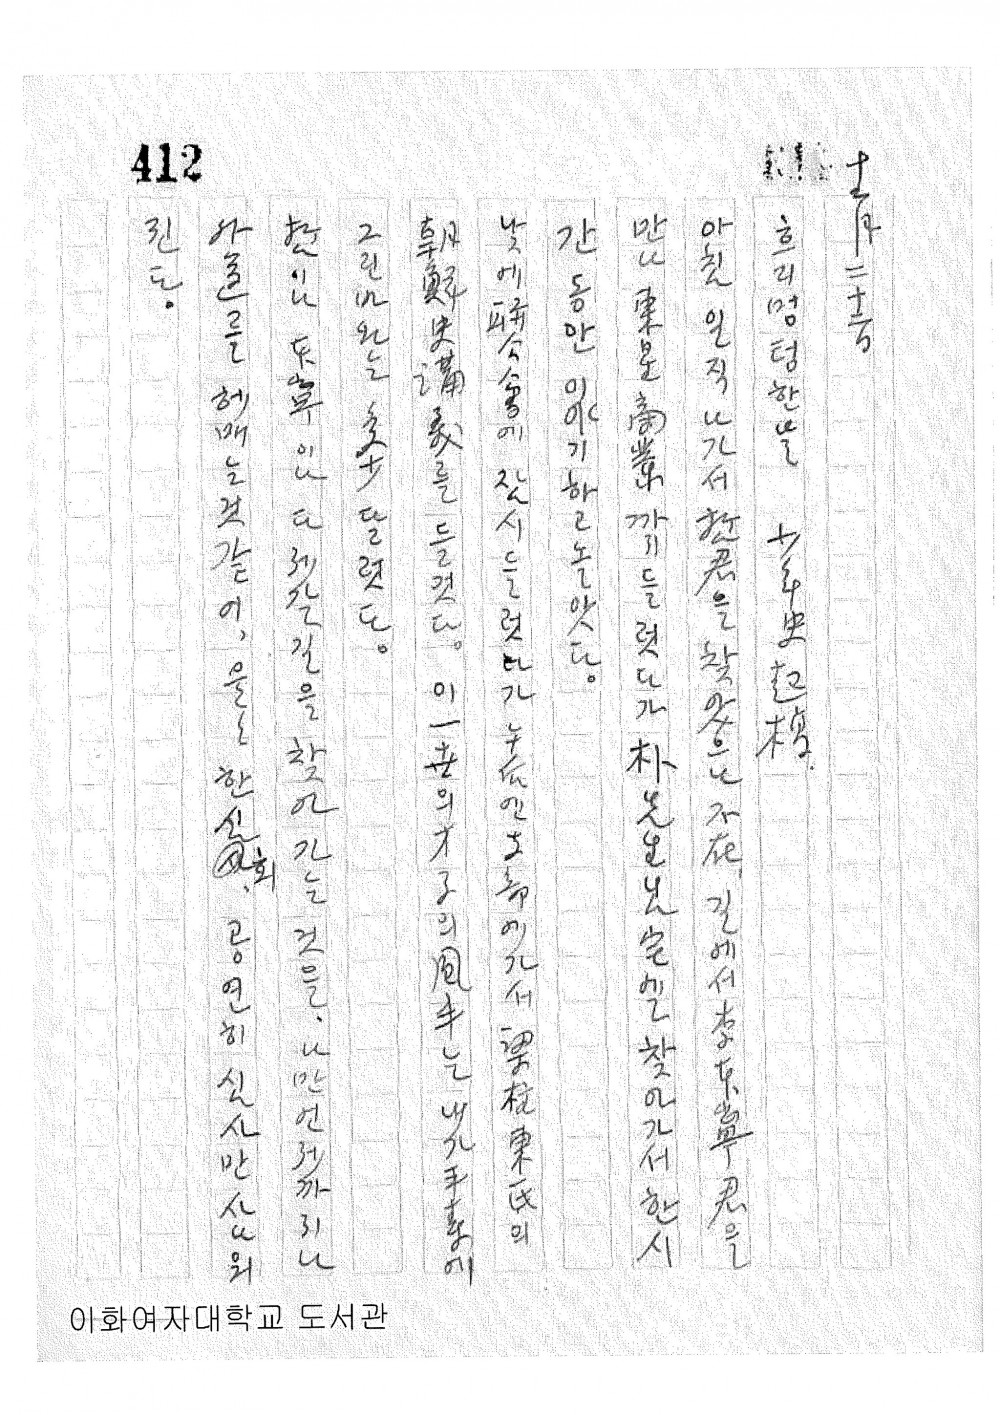 412
十一月二十日
흐리멍텅한날 少年史起稿.
아침 일직 나가서 君을 찾앗으나 不在, 길에서 李東寧君을
만나 東星商業까지 들렷다가 朴先生宅엘 찾아가서 한시
간 동안 이야기하고 놀앗다。
낮에 聯合會에 잠시 들렷다가 午后엔 支部에 가서 梁柱東氏의
朝鮮史講義를 들럿다。 이 一世의 才子의 風丰는 내가 平素에
그린바와는 多少 달럿다。
이나 東寧이나 다 제갈길을 찾어 가는 것을, 나만 언제까지나
를 헤매는것같어, 울는 한심화, 공연히 심사만 삼난의
진다。
이화여자대학교 도서관